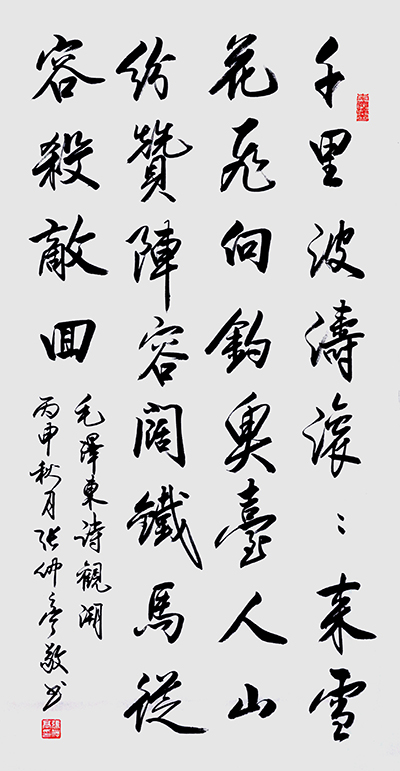 千里波濤滾々来雪
花飛向釣魚臺人山
紛贊陣容闊鐵馬從
容殺敵回
毛澤東詩觀潮
丙申秋月張仲亭敬書